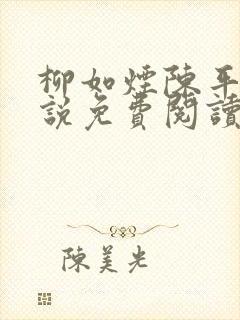 柳如煙陳平
說免費閱讀
陳美光